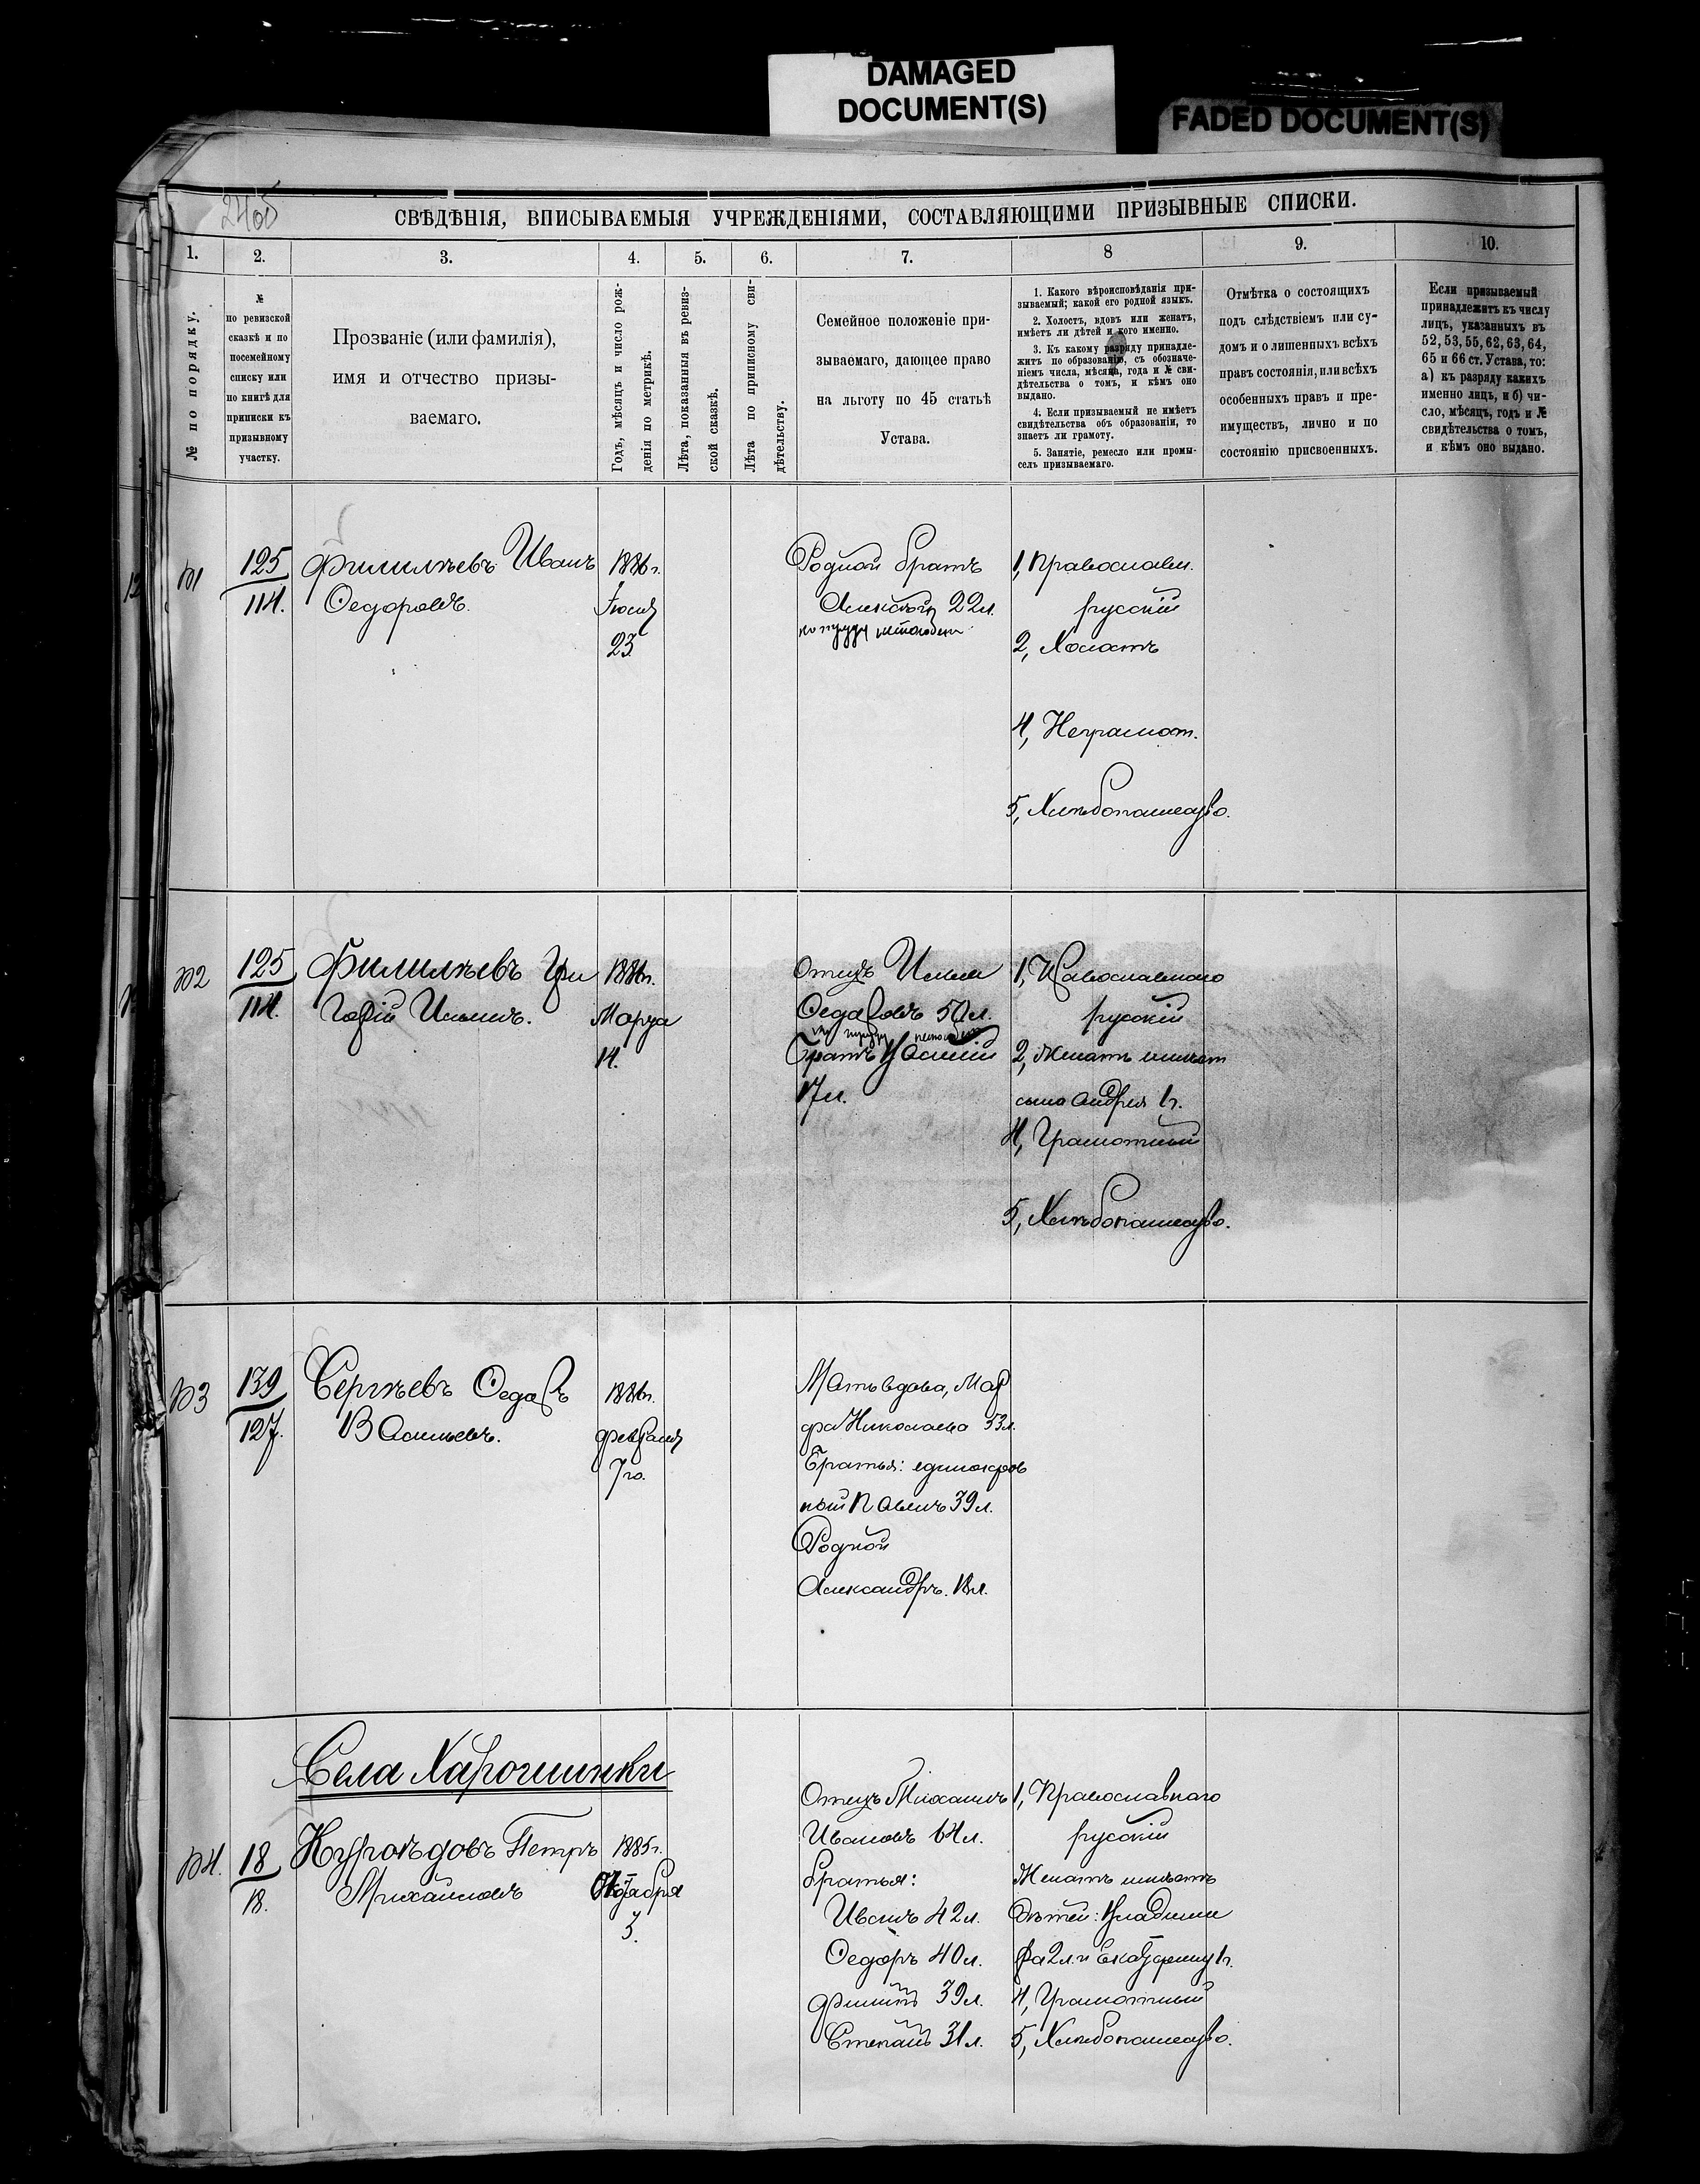 DAMAGED
DOCUMENT(S)
FADED DOCUMENT(S)
СВѢДѢНІЯ, ВПИСЫВАЕМЫЯ УЧРЕЖДЕНІЯМИ, СОСТАВЛЯЮЩИМИ ПРИЗЫВНЫЕ СПИСКИ.
1.
2.
3.
4.
5.
6.
7.
8
9.
10.
№ по порядку.
№
по ревизской
сказкѣ и по
посемейному
списку или
по книгѣ для
приписки къ
призывному
участку.
Прозваніе (или фамилія),
имя и отчество призы-
ваемаго.
Годъ, мѣсяцъ и число рож-
денія по метрикѣ.
Лѣта, показанныя въ ревиз-
ской сказкѣ.
Лѣта по приписному сви-
дѣтельству.
Семейное положеніе при-
зываемаго, дающее право
на льготу по 45 статьѣ
Устава.
1. Какого вѣроисповѣданія при-
зываемый; какой его родной языкъ.
2. Холостъ, вдовъ или женатъ,
имѣетъ ли дѣтей и кого именно.
3. Къ какому разряду принадле-
житъ по образованію, съ обозначе-
ніемъ числа, мѣсяца, года и № сви-
дѣтельства о томъ, и кѣмъ оно
выдано.
4. Если призываемый не имѣетъ
свидѣтельства объ образованіи, то
знаетъ ли грамоту.
5. Занятіе, ремесло или промы-
селъ призываемаго.
Отмѣтка о состоящихъ
подъ слѣдствіемъ или су-
домъ и о лишенныхъ всѣхъ
правъ состоянія, или всѣхъ
особенныхъ правъ и пре-
имуществъ, лично и по
состоянію присвоенныхъ.
Если призываемый
принадлежитъ къ числу
лицъ, указанныхъ въ
52, 53, 55, 62, 63, 64,
65 и 66 ст. Устава, то:
а) къ разряду какихъ
именно лицъ, и б) чи-
сло, мѣсяцъ, годъ и №
свидѣтельства о томъ,
и кѣмъ оно выдано.
125
114.
Филипьевъ Иванъ
Федоровъ.
1886г.
Іюля
23
Родной братъ
Алексѣй 22л.
1, Православн.
русскій
2, Холостъ
4, Неграмот.
5, Хлѣбопашество.
125
114.
Филипьевъ Гри
горій Ильинъ.
1886г.
Марта
14.
Отецъ Илья
Федоровъ 50л.
Братъ Василій
17л.
1, Православнаго
русскій
2, Женатъ имѣет
сына Андрея 1г.
4, Грамотный
5, Хлѣбопашество.
139
127.
Сергѣевъ Федоръ
Васильевъ.
1886г.
февраля
7го.
Мать вдова, Мар
фа Николаева 53л.
Братья: единокров
ный Павелъ 39л.
Родной
Александръ. 18л.
Села Харошинки
18
18.
Куроѣдовъ Петръ
Михайловъ
1885г.
3.
Отецъ Михаилъ
Ивановъ 64л.
братья:
Иванъ 42л.
Федоръ 40л.
Филипъ 39л.
Степанъ 31л.
1, Православнаго
русскій
Женатъ имѣетъ
дѣтей: Владими
ра 2л. и Екатерину 1г.
4, Грамотный
5, Хлѣбопашество.